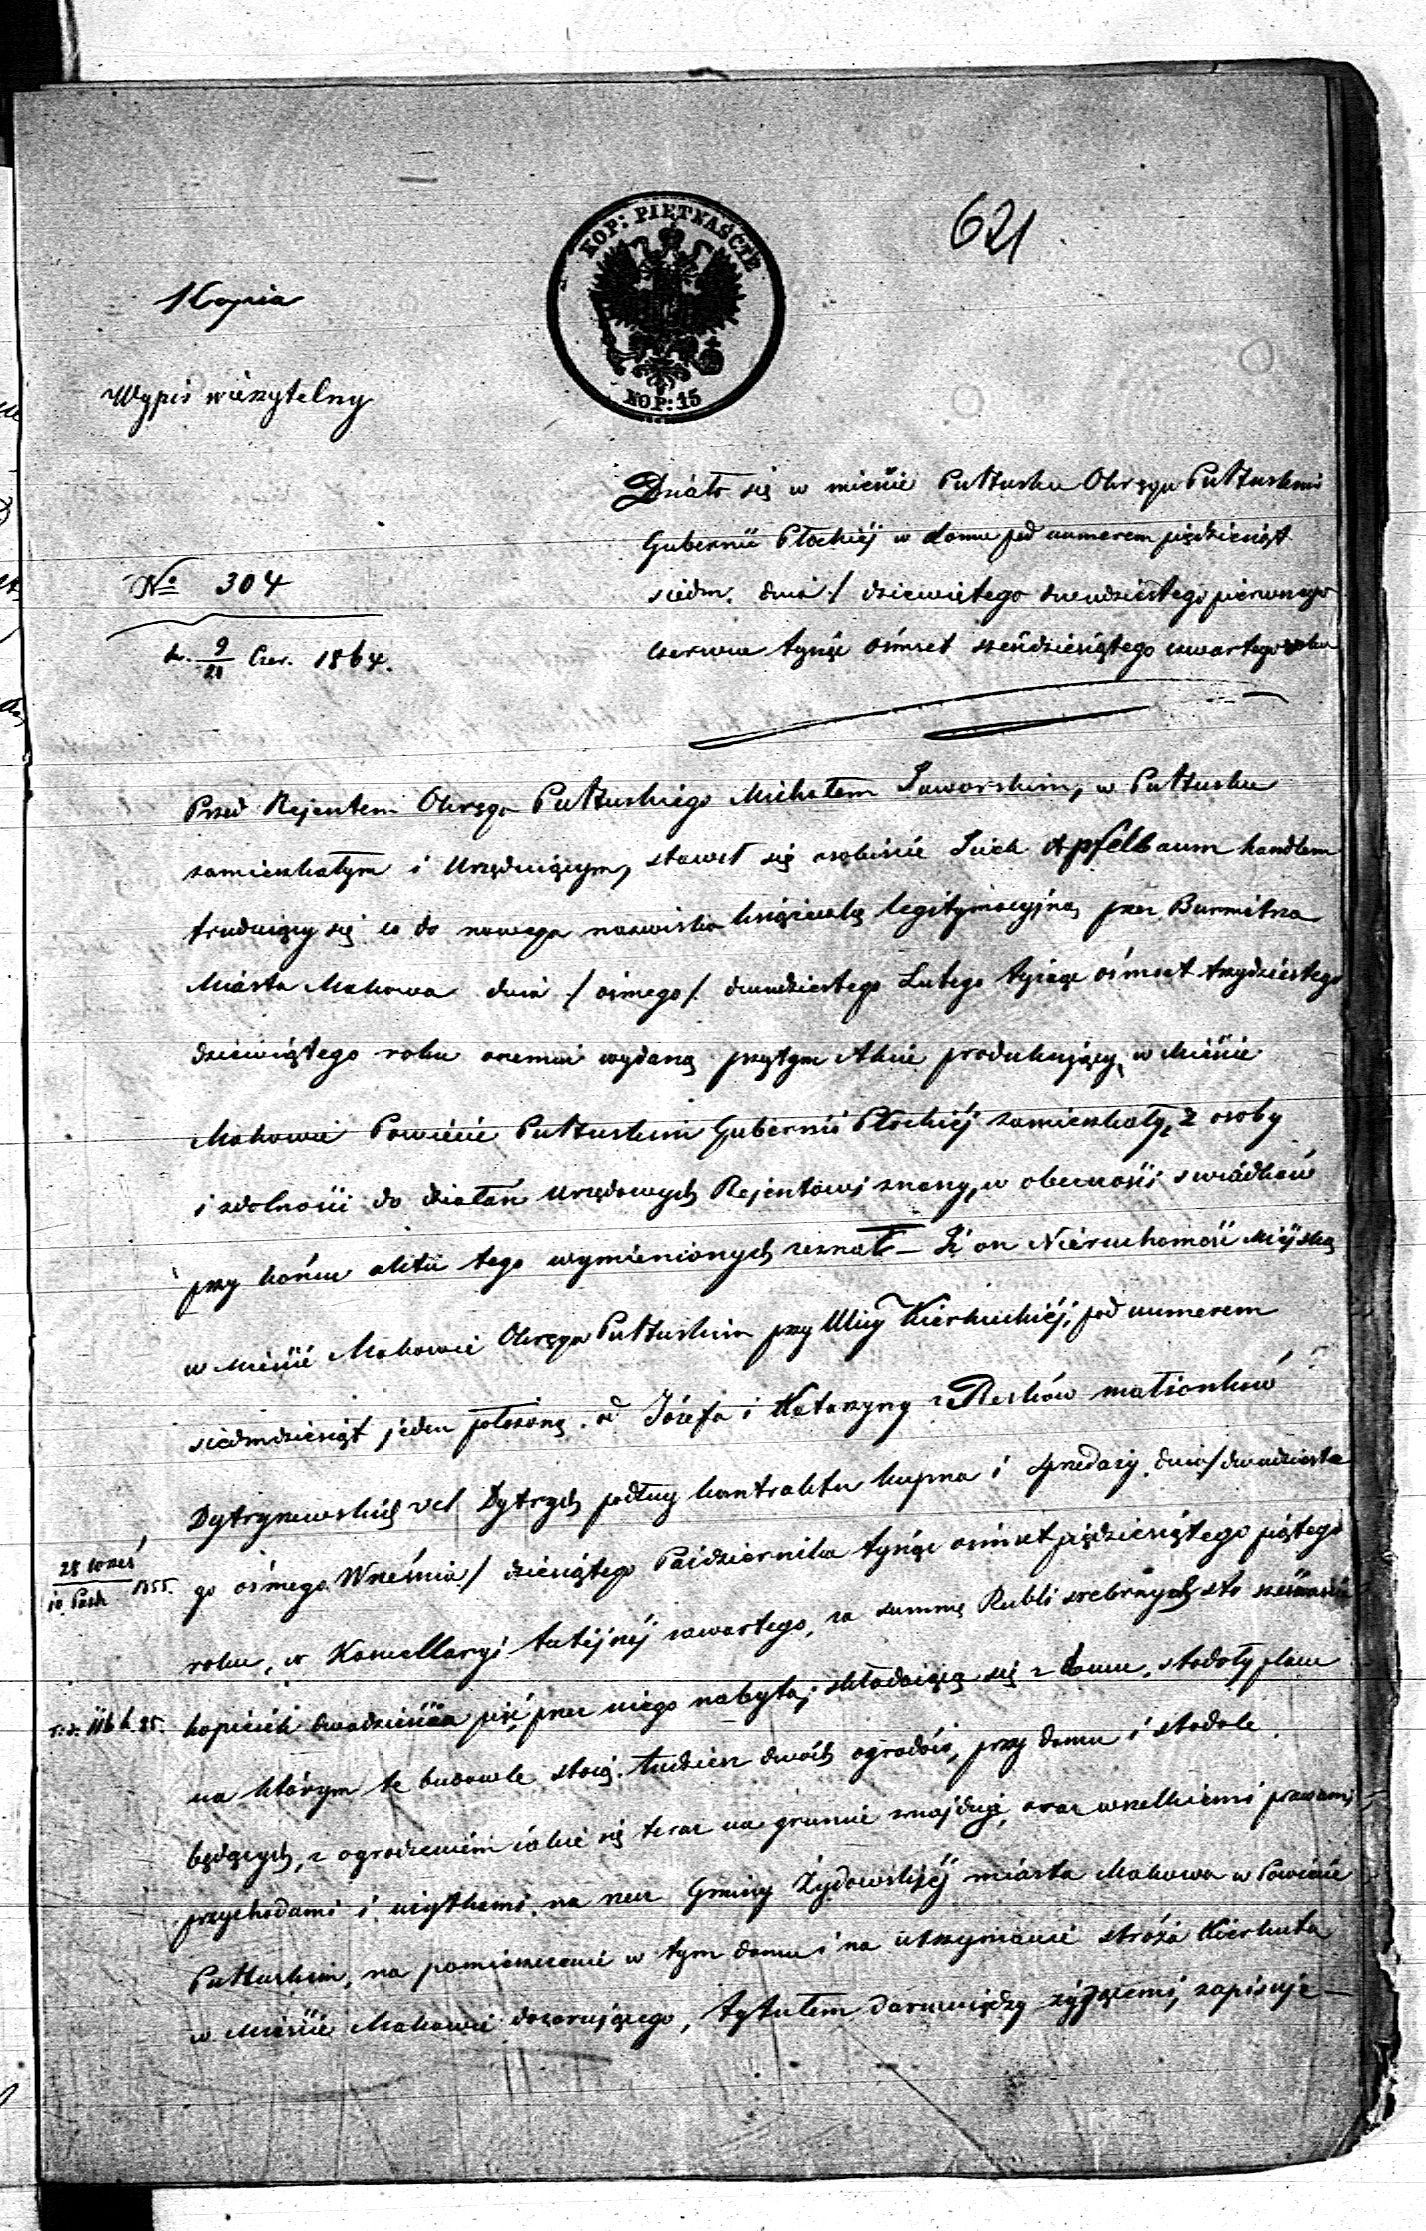 621
KOP: PIĘTNAŚCIE
KOP: 15
Kopia
Wypis wierzytelny
Działo się w mieście Pułtusku Okręgu Pułtuskim
Gubernii Płockiéj w domu pod numerem pięćdziesiąt
siedm. dnia / dziewiątego dwudziestego pierwszego
Czerwca tysiąc ośmset sześćdziesiątego czwartego roku
No 304
d. 9/21 Czer. 1864.
Przed Rejentem Okręgu Pułtuskiego Michałem Jaworskim, w Pułtusku
zamieszkałym i Urzędującym, stawił się osobiście Apfelbaum handlem
trudniący się co do nowego nazwiska książeczkę legitymacyjną przez Burmistrza
Miasta Makowa dnia / ósmego / dwudziestego Lutego tysiąc ośmset trzydziestego
dziewiątego roku onemuż wydaną przytym Akcie produkujący, w Mieście
Makowie Powiecie Pułtuskim Gubernii Płockiéj zamieszkały, z osoby
i zdolności do działań Urzędowych Rejentowi znany, w obecności swiadków
przy końcu aktu tego wymienionych zeznał – Iż on Nieruchomość Miejską
w Mieście Makowie Okręgu Pułtuskim przy Ulicy Kierkuckiéj, pod numerem
siedmdziesiąt jeden położoną, od Józefa i Katarzyny z małżonków
Dytrynewskich vel Dytrych podług kontraktu kupna i sprzedaży dnia / dwudzieste
go ósmego Września / dziesiątego Października tysiąc ośmset pięćdziesiątego piątego
28 Wrześ/10 Paźdz 1855.
roku, w Kancellaryi tutéjszéj zawartego, za summę Rubli srebrnych sto szesnaście
r. s. 116 k. 25.
kopiejek dwadzieścia pięć przez niego nabytą; składającą się z domu, stodoły placu
na którym te budowle stoią, tudzież dwóch ogrodów, przy domu i stodole
będących, z ogrodzeniem iakie się teraz na gruncie znajduje, oraz wszelkiemi prawami,
przychodami i użytkami, na rzecz Gminy Żydowskiéj miasta Makowa w Powiecie
Pułtuskim, na pomieszczenie w tym domu i na utrzymanie stróża Kierkuta
w Mieście Makowie dozorującego, tytułem darowizny między żyjącemi, zapisuje –